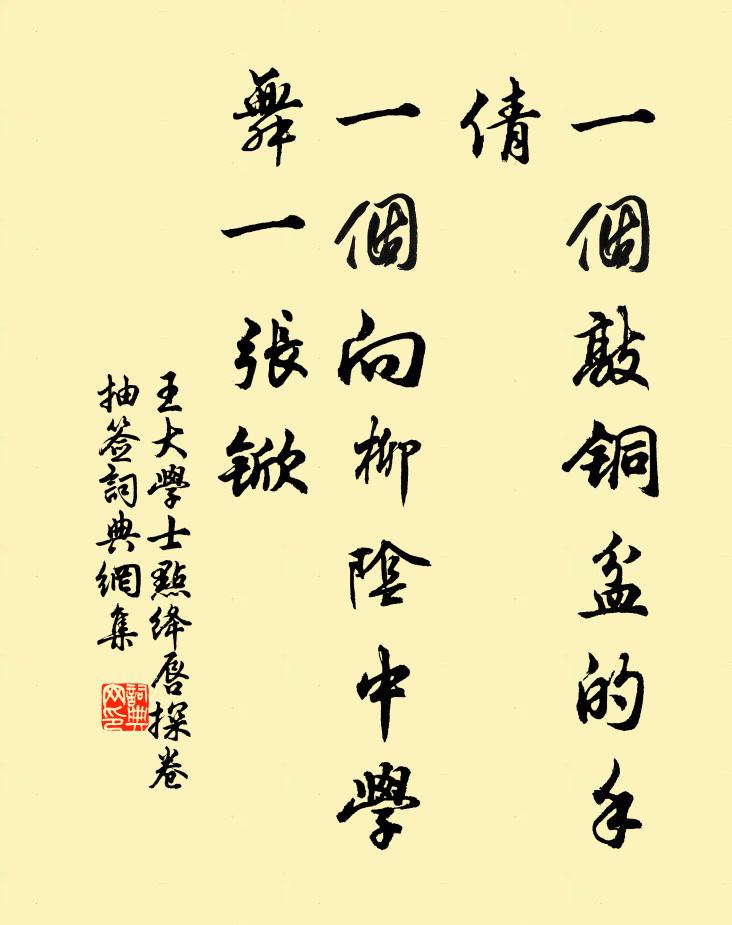 一個敲銅盆的手
倩
一個向柳陰中學
舞一張鍁
王大學士點绛唇探卷
抽签詞典網集
詞典
网印